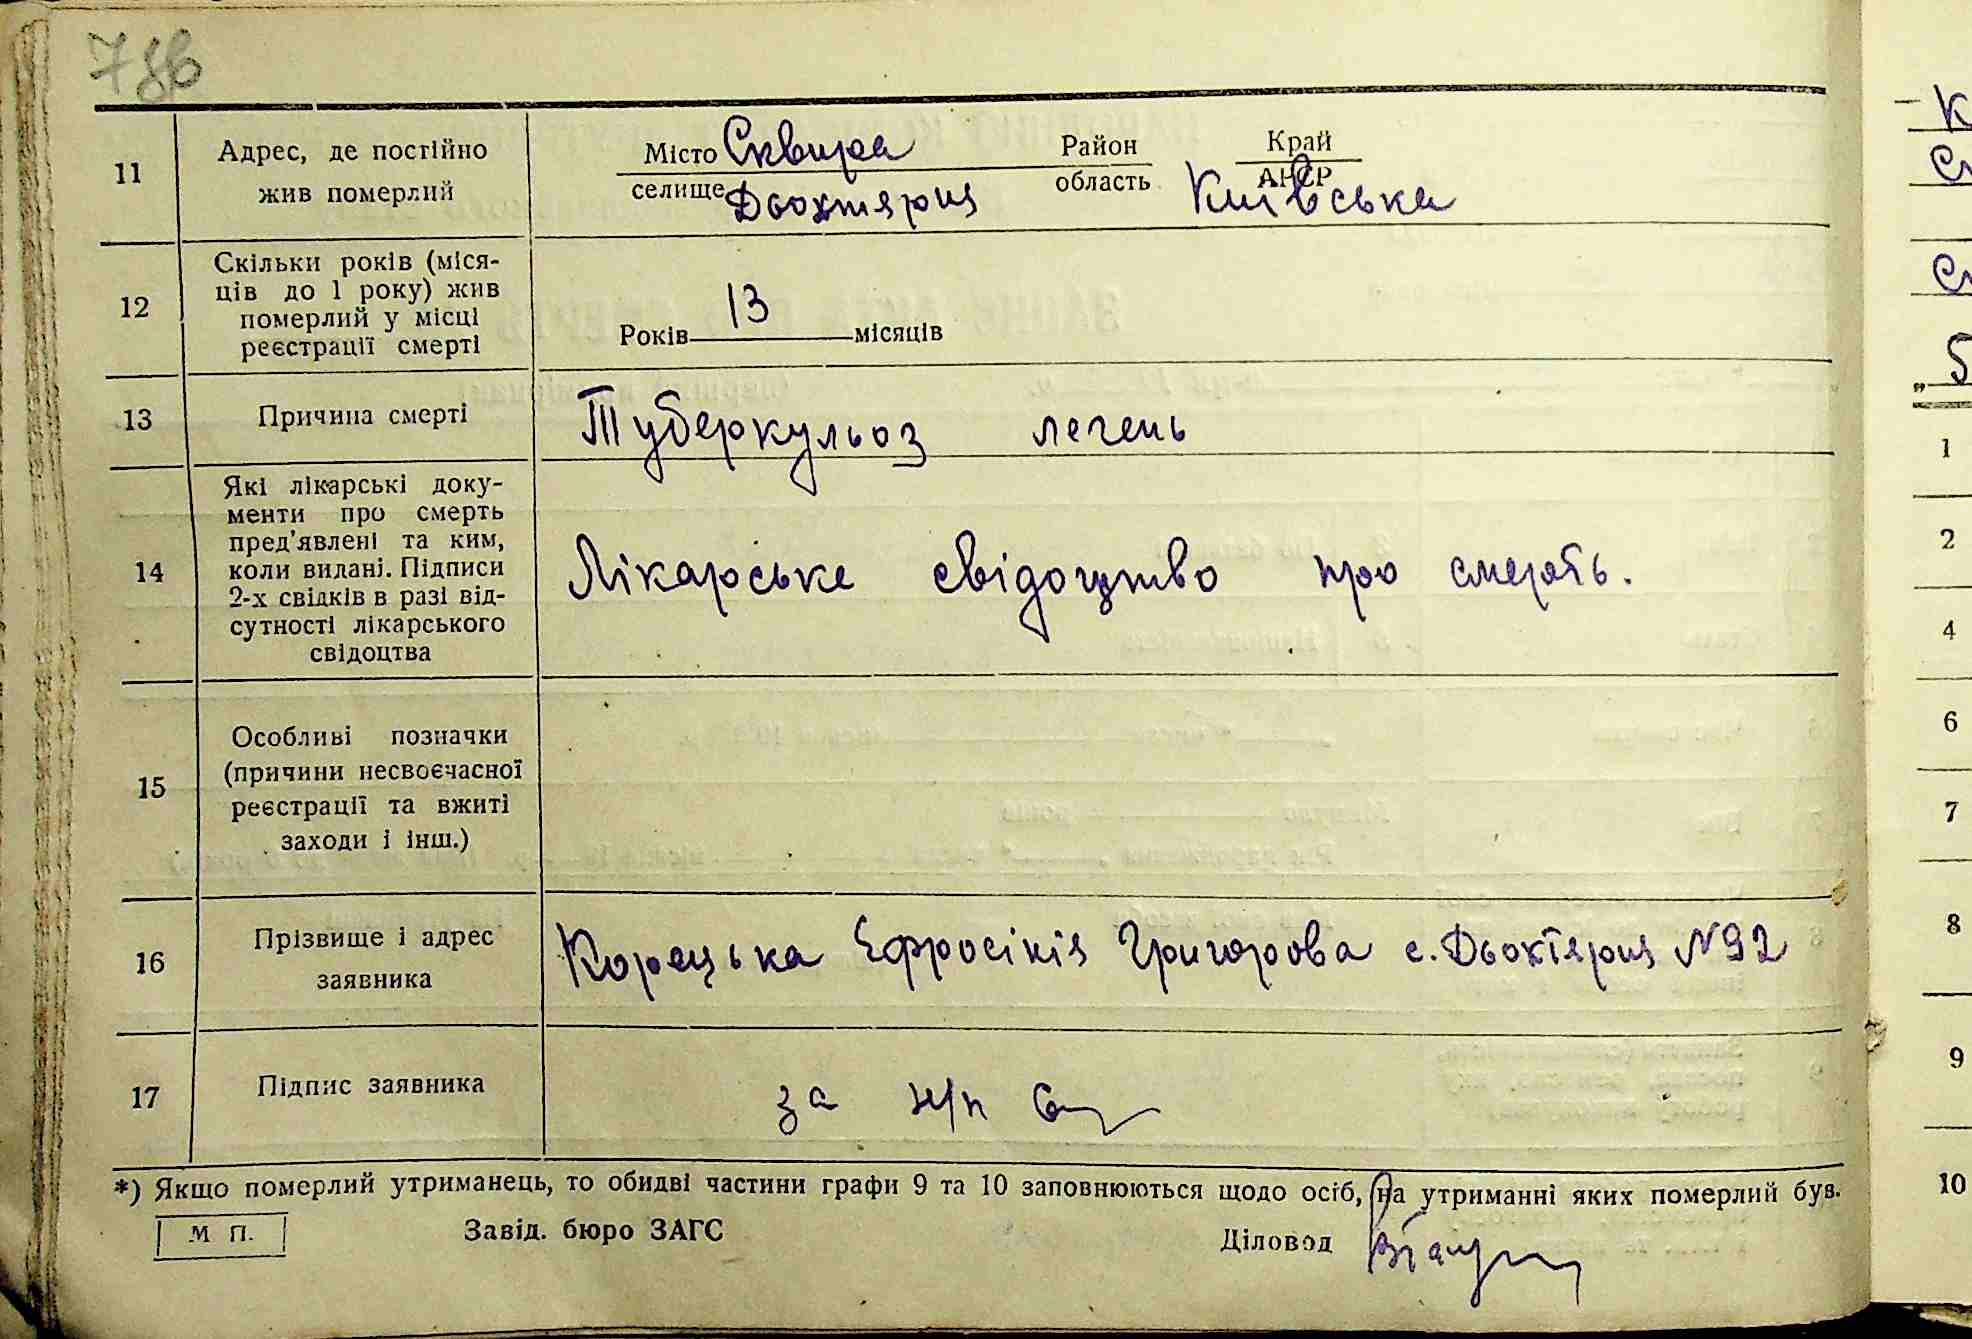 78в
11 Адрес, де постійно жив померлий
Місто Сквира Район Край
селище Дьохтярня область АНСР Київська
12 Скільки років (міся-
ців до 1 року) жив
померлий у місці
реєстрації смерті
Років 13 місяців
13 Причина смерті Туберкульоз легень
14 Які лікарські доку-
менти про смерть
пред'явлені та ким,
коли видані. Підписи
2-х свідків в разі від-
сутності лікарського
свідоцтва
Лікарське свідоцтво про смерть.
15 Особливі позначки
(причини несвоєчасної
реєстрації та вжиті
заходи і інш.)
16 Прізвище і адрес
заявника
Корецька Ефросінія Григорова с. Дьохтярня №92
17 Підпис заявника за н/п
*) Якщо померлий утриманець, то обидві частини графи 9 та 10 заповнюються щодо осіб, на утриманні яких померлий був.
М П. Завід. бюро ЗАГС Діловод
1
2
4
6
7
8
9
10